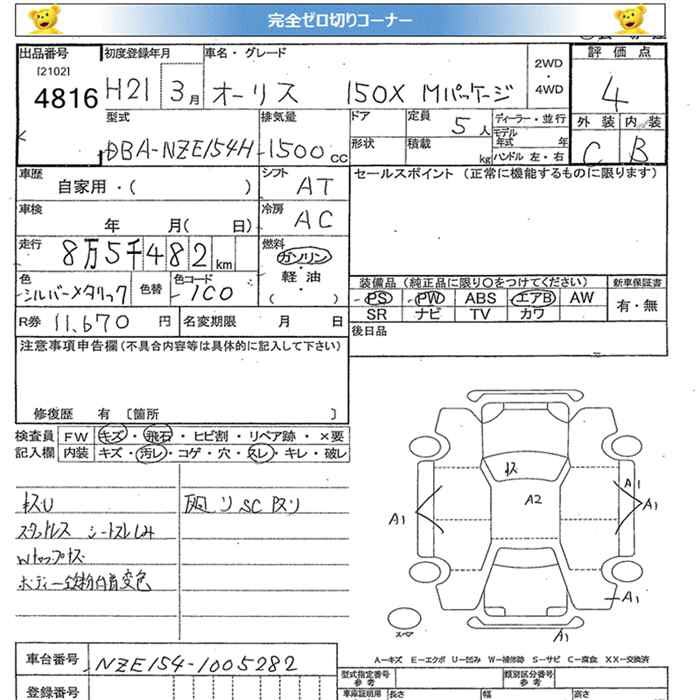 完全ゼロ切りコーナー
出品番号 初度登録年月 車名・グレード 評価点
[2102]
4816 H21 3月 オーリス 150X Mパッケージ 2WD・4WD 4
型式 排気量 ドア 定員 5人 ディーラー・並行 外装 内装
モデル年式 年
DBA-NZE154H 1500cc 形状 積載 kg ハンドル 左・右 C B
車歴 シフト セールスポイント (正常に機能するものに限ります)
自家用・( ) AT
車検 冷房
年 月( 日) AC
走行 燃料
8万5千482km ガソリン・軽油
( )
色 色替 色コード 装備品 (純正品に限り○をつけてください) 新車保証書
シルバーメタリック 1C0 PS PW ABS エアB AW 有・無
SR ナビ TV カワ
R券 11,670円 名変期限 月 日 後日品
注意事項申告欄 (不具合内容等は具体的に記入して下さい)
修復歴 有 〔箇所 〕
検査員 FW キズ・飛石・ヒビ割・リペア跡・×要
記入欄 内装 キズ・汚レ・コゲ・穴・スレ・キレ・破レ
キズU
シートスレしみ
Wトップキズ
ボディー鉄粉
変色
キズ
A2
A1
A1
A1
A1
A1
A1
スペア
A-キズ E-エクボ U-凹み W-補修跡 S-サビ C-腐食 XX-交換済
車台番号 NZE154-1005282
登録番号
型式指定番号 参考 類別区分番号 参考
車庫証明用 参考 長さ 幅 高さ